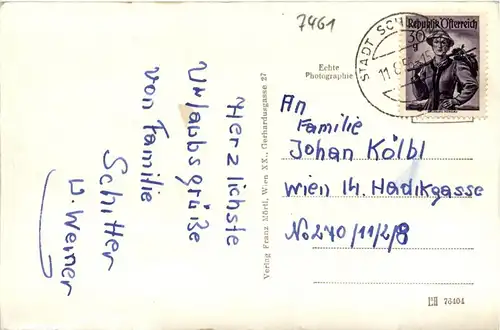 7461
Herzlichste
Urlaubsgrüße
von Familie
Schitter
u. Werner
Verlag Franz Mörtl, Wien XX., Gerhardusgasse 27
Echte
Photographie
STADT SCH
11.8.5
Republik Österreich
30
g
An
Familie
Johan Kölbl
Wien 14. Hadikgasse
No 240/11/2/8
76404